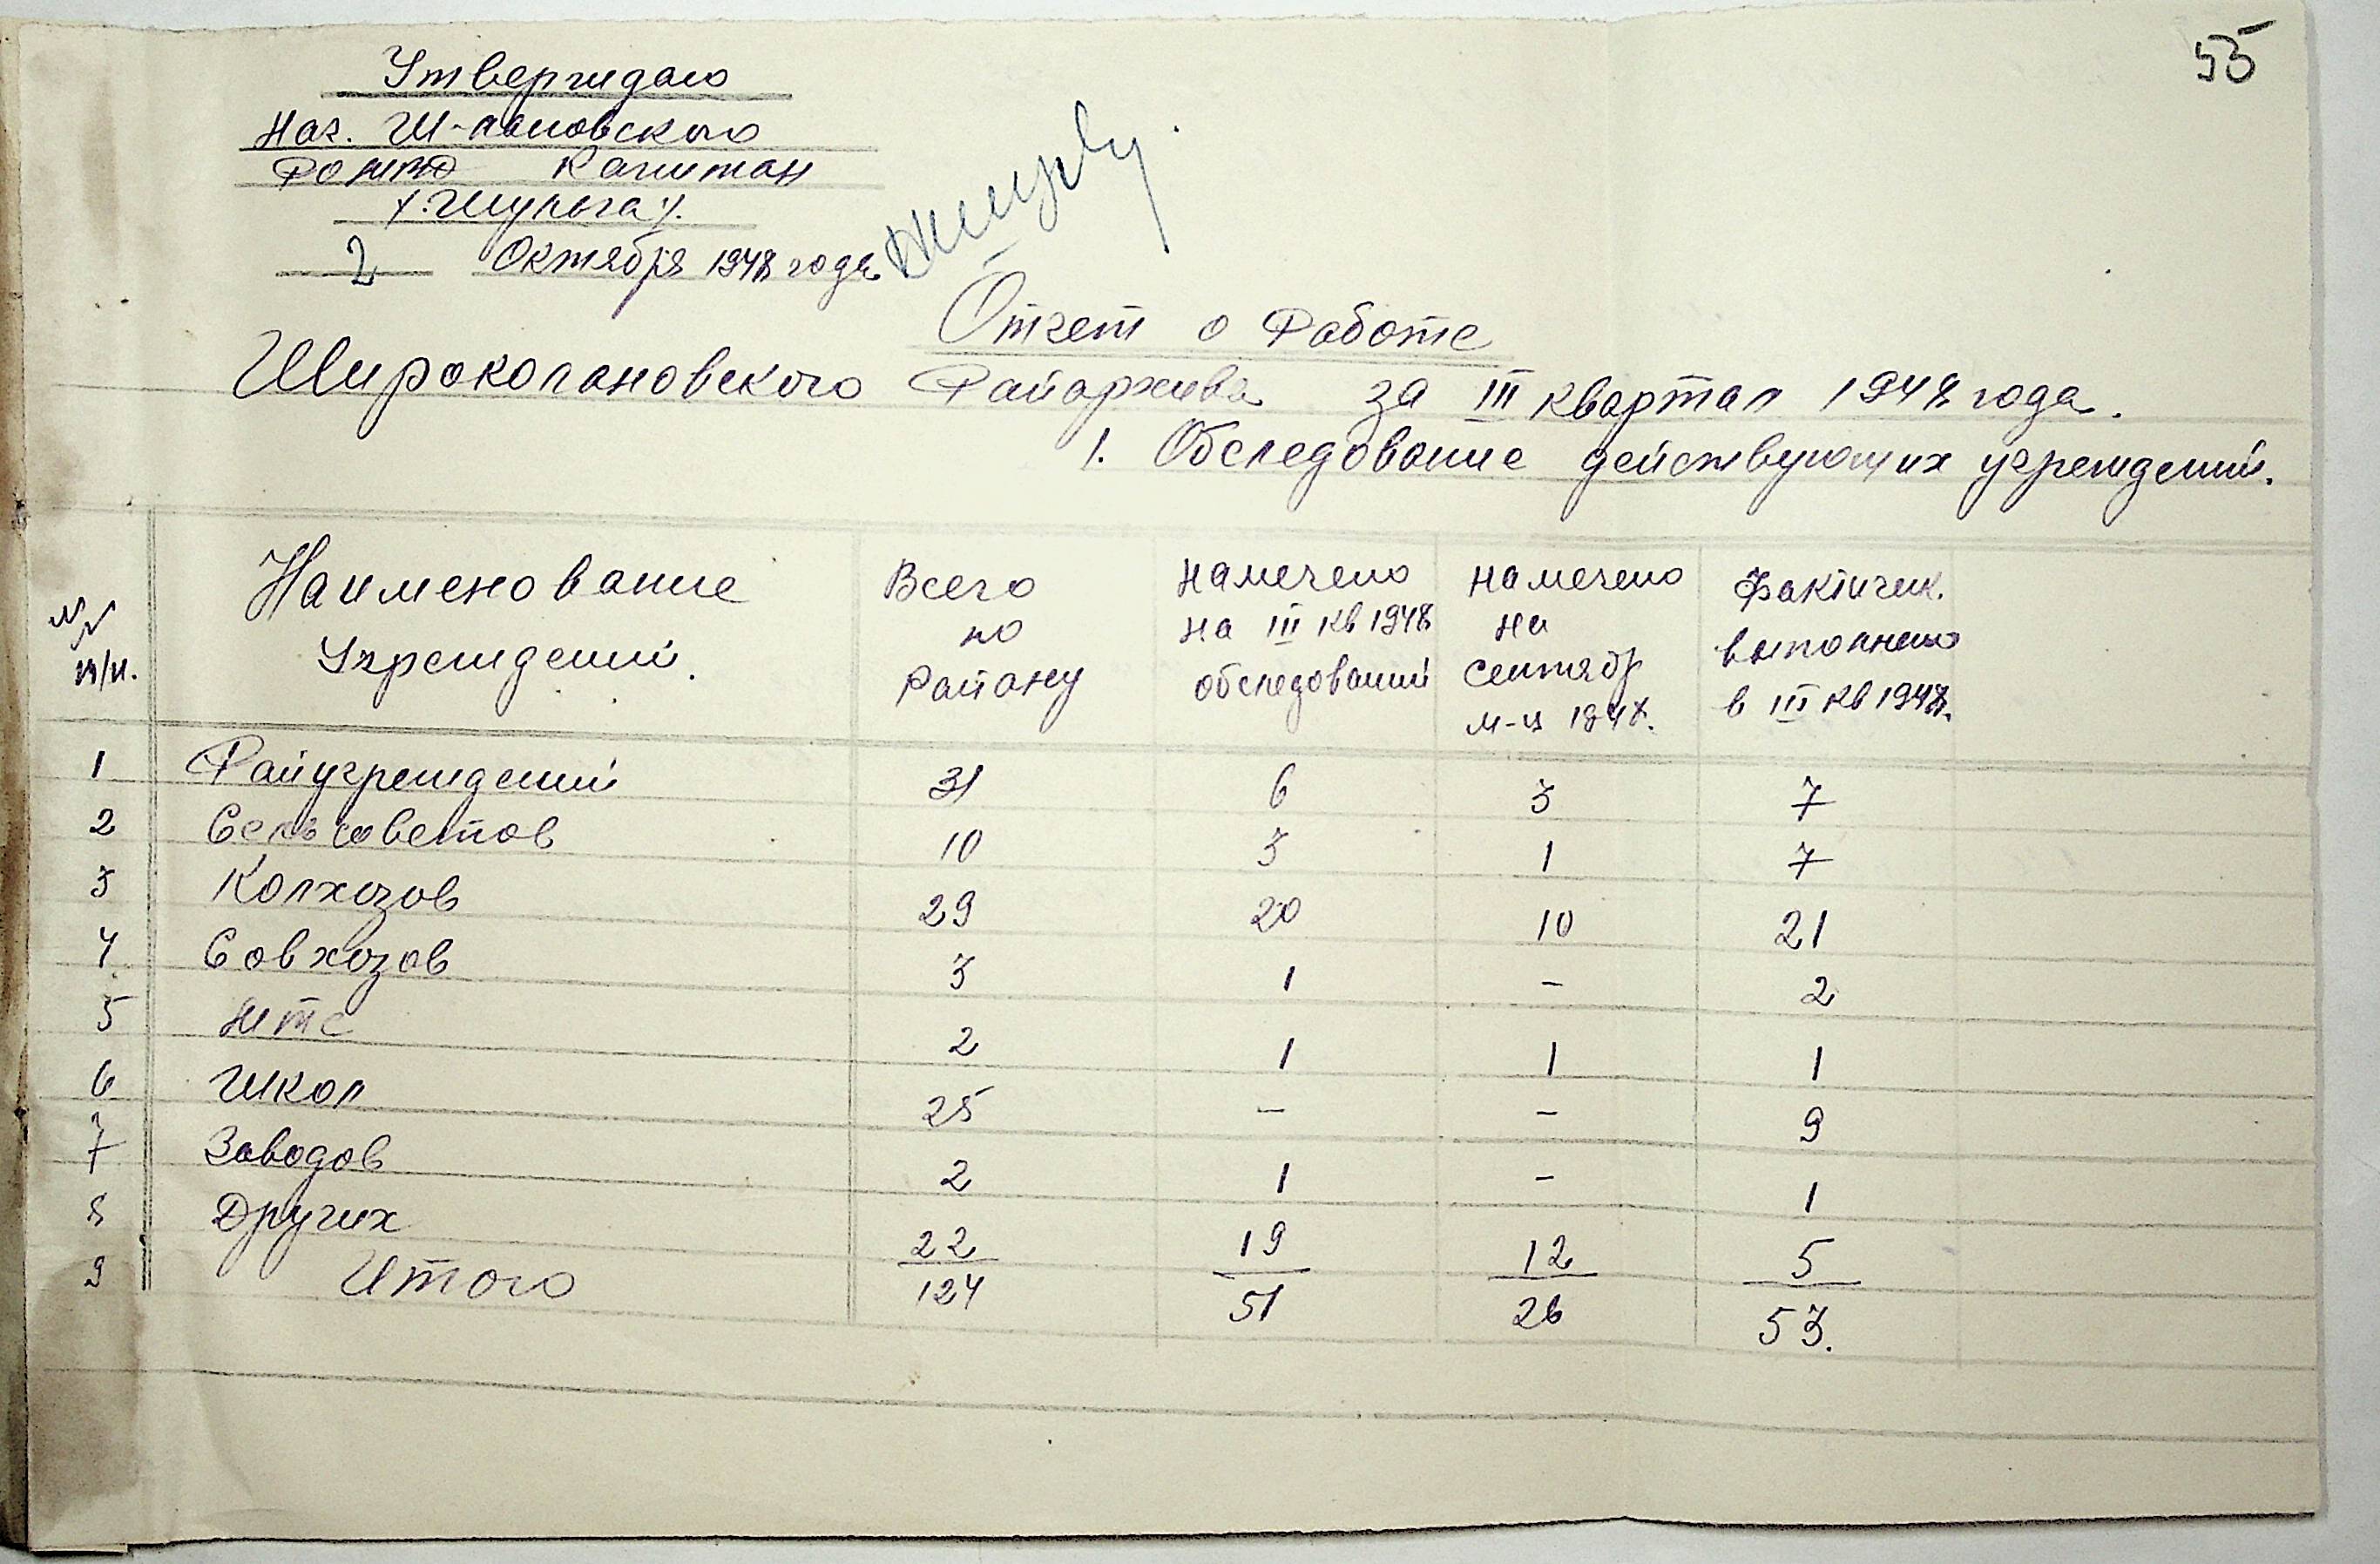 55
Утверждаю
Нач. Ш-лановского
РОМВД Капитан
/:Шульга:/.
2 Октября 1948 года
Отчет о Работе
Широколановского Райархива за III квартал 1948 года.
1. Обследование действующих учреждений.
№№ п/п. Наименование Учреждений. Всего по Району Намечено на III кв 1948 обследований Намечено на Сентябр м-ц 1948. Фактичек. выполнено в III кв 1948.
1 Райучреждений 31 6 3 7
2 Сельсоветов 10 3 1 7
3 Колхозов 29 20 10 21
4 Совхозов 3 1 - 2
5 МТС 2 1 1 1
6 Школ 25 - - 9
7 Заводов 2 1 - 1
8 Других 22 19 12 5
9 Итого 124 51 26 53.